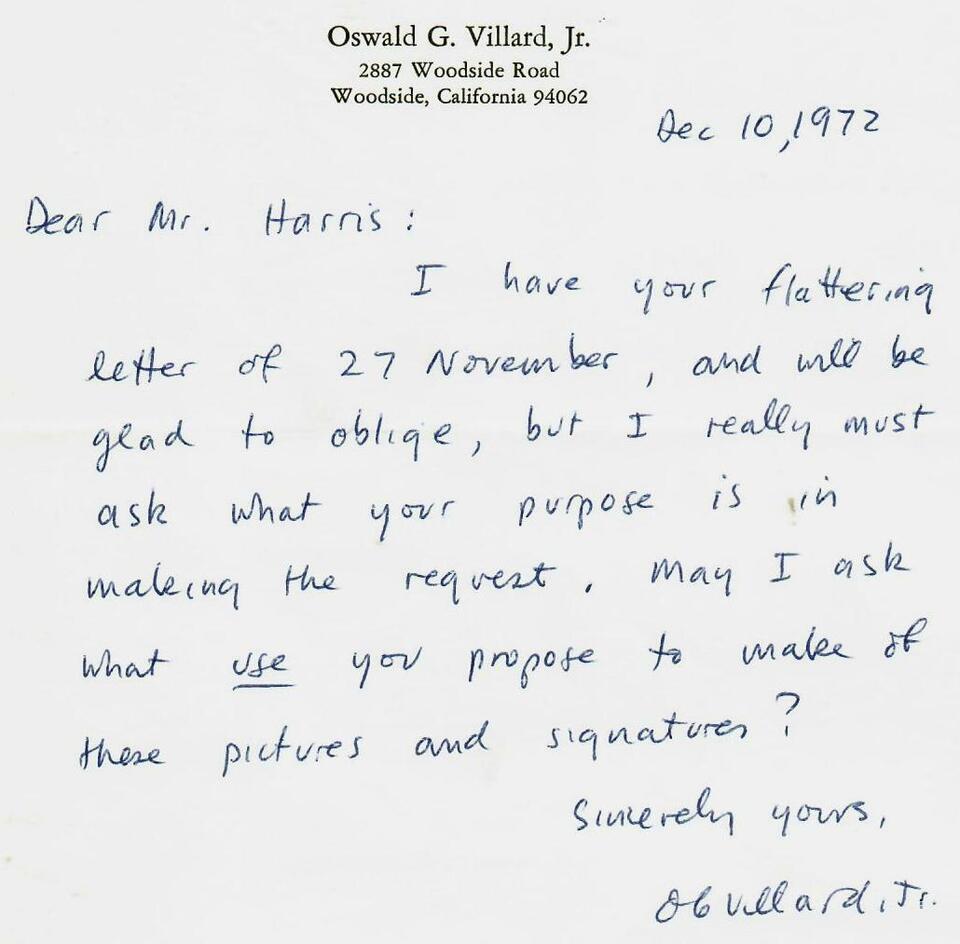 Oswald G. Villard, Jr.
2887 Woodside Road
Woodside, California 94062
Dec 10, 1972
Dear Mr. Harris:
I have your flattering
letter of 27 November, and will be
glad to oblige, but I really must
ask what your purpose is in
making the request. May I ask
what use you propose to make of
these pictures and signatures?
Sincerely yours,
OG Villard, Jr.